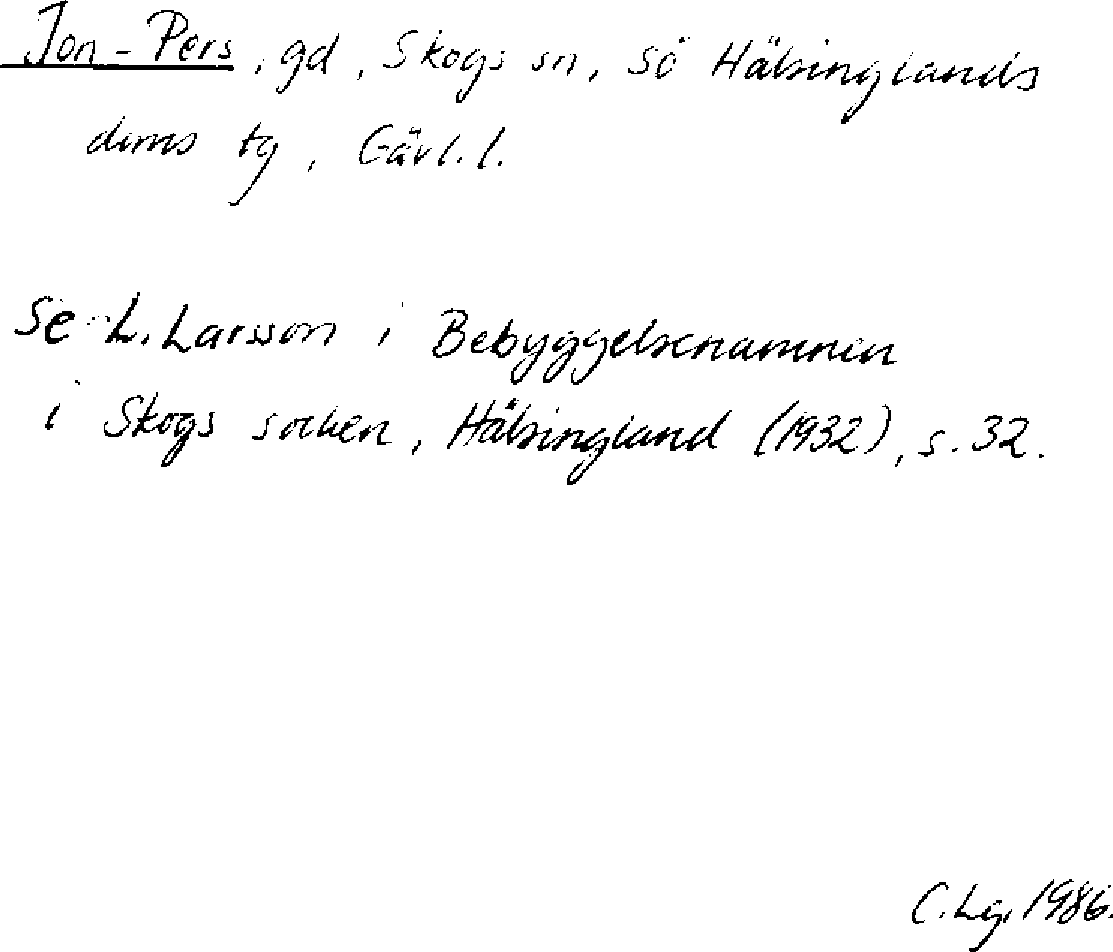 Jon-Pers, gd, Skogs sn, sö Hälsinglands
doms tg, Gävl. l.
Se L. Larsson i Bebyggelsenamnen
i Skogs socken, Hälsingland (1932), s. 32.
C. Lg, 1986.